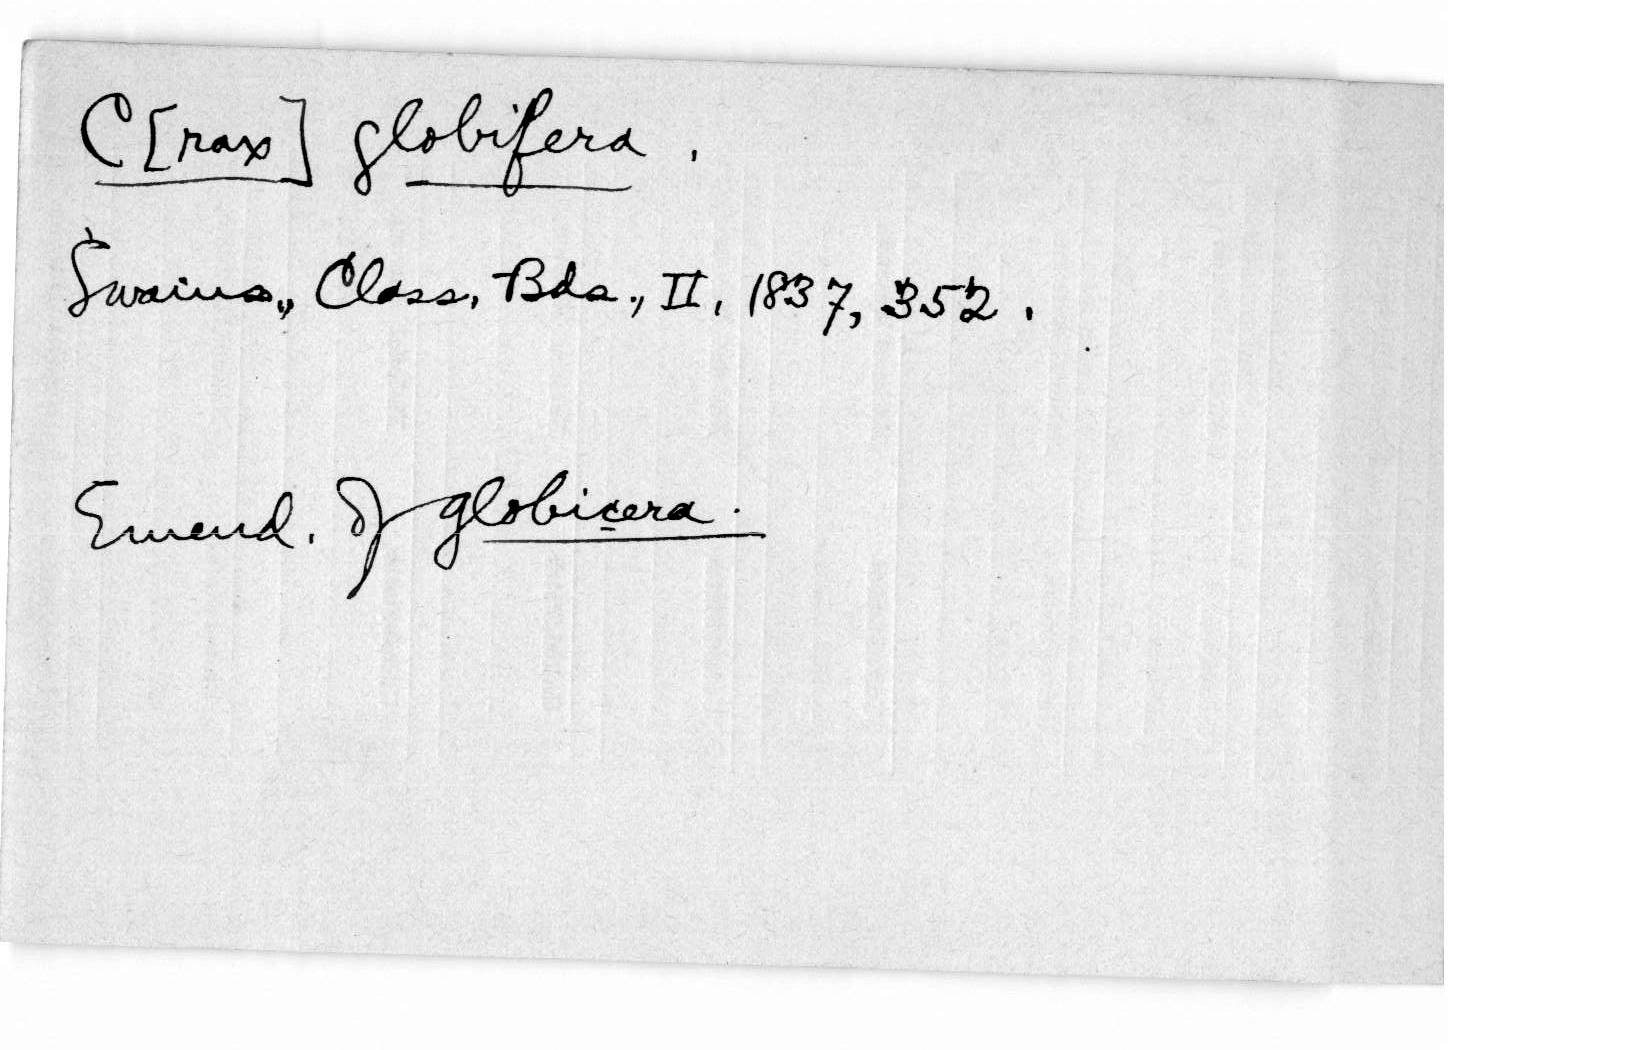 C[rax] globifera.
Swains., Class. Bds., II, 1837, 352.
Emend. of globicera.